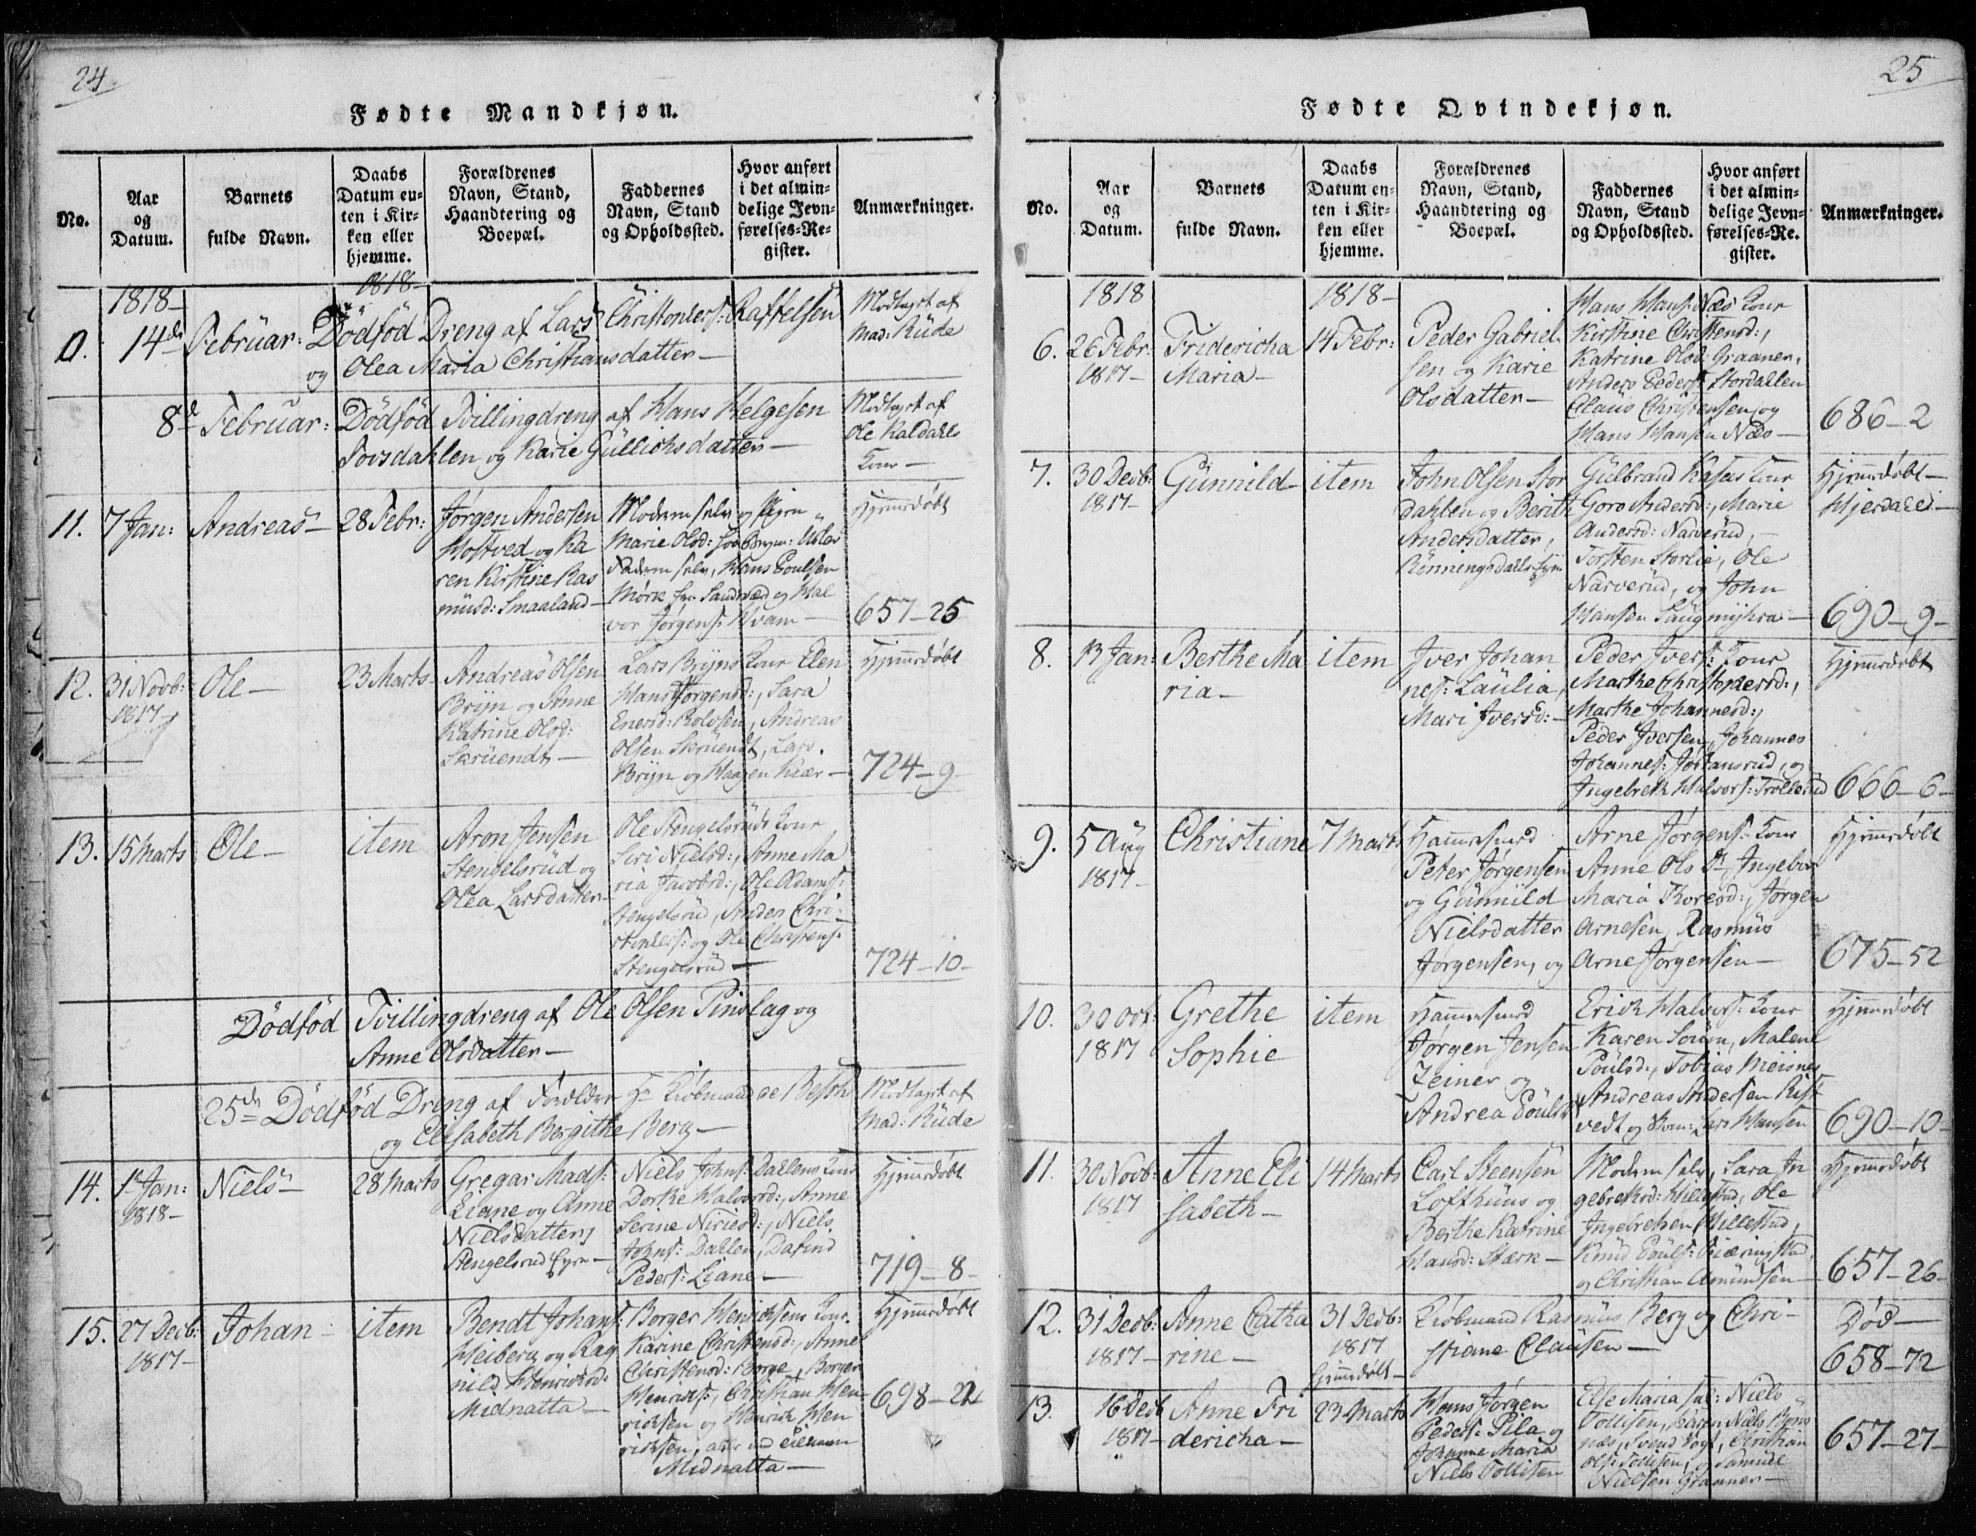 24
Fødte Mandkjøn.
No.
Aar
og
Datum.
Barnets
fulde Navn.
Daabs
Datum en-
ten i Kir-
ken eller
hjemme.
Forældrenes
Navn, Stand,
Haandtering og
Boepæl.
Faddernes
Navn, Stand
og Opholdssted.
Hvor anført
i det almin-
delige Jevn-
førelses-Re-
gister.
Anmærkninger.
1818-
1818-
0. 14de Februar: Dödfød Dreng af Lars Christophers: Raffelsen
og Olea Maria Christiansdatter-
Modtaget af
Mad: Rüde
8de Februar: Dödfød Tvillingdreng af Hans Helgesen
og Karie Gullichsdatter-
Modtaget af
Ole Kaldahls
Kone-
11. 7 Jan:
Andreas-
28 Febr:
Jørgen Andersen
Hostved og Ka
ren Kirstine Ras
müsd: Smaaland-
Moderen selv og
Marie Olsd:
Faderen selv, Hans Poulsen
Mørk fra Sandsværd og Hal
vor Jørgens: Hvam-
Hjemmedøbt
657-25
12. 31 Novb:
1817
Ole-
23 Marts
Andreas Olsen
Brÿn og Anne
Katrine Olsd:
Skrüendt-
Lars Brÿns Kone Elen
Hans Jørgensd:, Sara
Andreas
Olsen Skrüendt, Lars
Brÿn og Haagen Kiær-
Hjemmedøbt
724-9
13. 15 Marts
Ole-
item
Aron Jensen
Stengelsrüd og
Olea Larsdatter-
Ole Stengelsrüds Kone
Siri Nielsd:, Anne Ma
ria Jacobsd:, Ole Adams:
Stengelsrüd, Anders Chri-
stophers: og Ole Christens:
Stengelsrüd-
724-10-
Dödfød Tvillingdreng af Ole Olsen Pinslag og
Anne Olsdatter-
25de Dödfød Dreng af Forældre Hr Kiøbmand
og Elisabeth Bergitthe Berg-
Modtaget af
Mad: Rüde
14. 1 Jan:
1818-
Niels-
28 Marts
Gregar Mads:
Liane og Anne
Nielsdatter,
Stengelsrud Eye-
Niels Johns: Dahlens Kone
Dorthe Halvorsd:, Anne
Serine, Niels
Johns: Dahlen,
Peders: Liane-
Hjemmedøbt
719-8-
15. 27 Decb:
1817-
Johan-
item
Bendt Johans:
Heiberg og Rag
nild Henriksd:
Midnatta-
Borger Henrichsens Kone
Karine Christensd:, Anne
Christensd: Borge, Borger
Henrichs:, Christian Hen
richsen og Henrich Hen
richsen, alle
Midnatta-
Hjemmedøbt
698-21
25
Fødte Qvindekjøn.
No.
Aar
og
Datum.
Barnets
fulde Navn.
Daabs
Datum en-
ten i Kir-
ken eller
hjemme.
Forældrenes
Navn, Stand,
Haandtering og
Boepæl.
Faddernes
Navn, Stand
og Opholdssted.
Hvor anført
i det almin-
delige Jevn-
førelses-Re-
gister.
Anmærkninger.
1818
1818-
6. 26 Febr:
1817-
Fridericha
Maria-
14 Febr:
Peder Gabriel
sen og Karie
Olsdatter-
Hans Hans: Næs Kone
Kirstine Christensd:,
Katrine Olsd: Graanen,
Anders Peders: Stordahlen
Claüs Christensen, og
Hans Hansen Næs-
686-2
7. 30 Decb:
1817-
Günnild-
item
John Olsen Stor
dahlen og Berith
Andersdatter,
Rönningsdals Eye
Gülbrand Kasas Kone
Goro Andersd:, Marie
Andersd: Narverüd,
Torsten Storlie, Ole
Narverüd, og John
Hansen Saugmÿhra-
Hjemmedøbt-
Hjerdahl-
690-9-
8. 13 Jan:
Berthe Ma
ria-
item
Iver Johan
nes: Laulia,
Mari Iversd:-
Peder Ivers: Kone
Marthe Christophersd:,
Marthe Johannesd:,
Peder Iversen, Johannes
Johannes:, og
Ingebreth Halvors: Trollerüd
Hjemmedøbt
666-6-
9. 5 Aug
1817-
Christiane
7 Marts
Hammersmed
Peter Jørgensen
og Günnild
Nielsdatter
Arne Jørgens: Kone
Anne Ols Dr, Ingebor
Maria Thoresd:, Jørgen
Arnesen, Rasmüs
Jørgensen, og Arne Jørgensen-
Hjemmedøbt
675-52
10. 30 Oct:
1817
Grethe
Sophie
item
Hammersmed
Jørgen Jensen
Zeiner og
Andrea Poulsd:
Erick Halvors: Kone
Karen, Malene
Poulsd:, Tobias Meisner
Andreas Andersen Rist
vedt og Lars Hansen
Hjemmedøbt
690-10-
11. 30 Novb:
1817
Anne Eli
sabeth-
14 Marts
Carl Steensen
Lofthuus og
Berthe Katrine
Hansd: Stærk-
Moderen selv, Sara In
gebrethsd: Hillestad, Ole
Ingebretsen Hillestad,
Knüd Pouls:
og Christian Amündsen-
Hjemmedøbt
657-26-
12. 31 Decb:
1817-
Anne Catha
rine-
31 Decb:
1817
Hjemmedøbt-
Kiøbmand Rasmüs Berg og Chri-
stiane Clausen-
Död-
658-72
13. 16 Decb
1817-
Anne Fri
dericha-
23 Marts
Hans Jørgen
Peders: Pila og
Johanne Maria
Niels Tollisen
Else Maria Niels
Tollisen, Karen Niels
næs, Svend Vogt, Christian
Ols: Tollisen, og Samuel
Nielsen Graanen-
657-27-